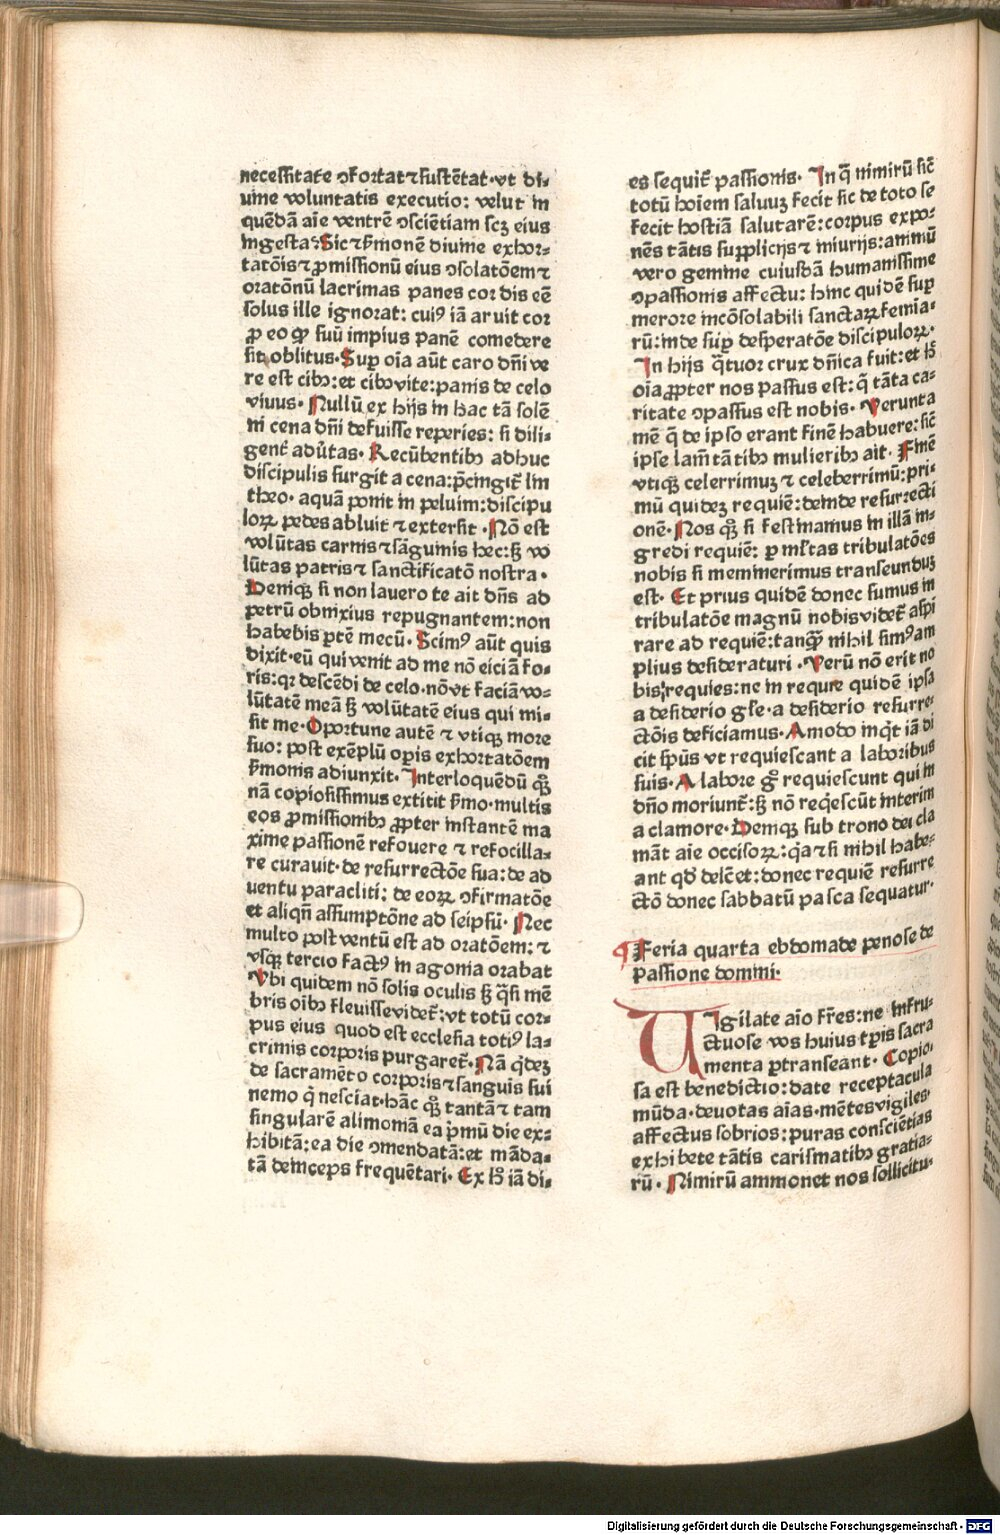 necessitate ꝯfortat ⁊ sustētat. vt di⸗
uine voluntatis executio: velut in
quēdā aīe ventrē ꝯsciētiam scꝫ eius
ingesta? Sic ⁊ ẜmonē diuine exhor⸗
tatōis ⁊ ꝓmissionū eius ꝯsolatōem ⁊
oratōnū lacrimas panes cordis eē
solus ille ignorat: cuiꝰ iā aruit cor
ꝓ eo ꝙ suū impius panē comedere
sit oblitus. Suꝑ oīa aūt caro dn̄i ve
re est cibꝫ: et cibꝫ vite: panis de celo
viuus. Nullū ex hijs in hac tā solē
ni cena dn̄i defuisse reperies: si dili⸗
genť aduťas. Recūbentibꝫ adhuc
discipulis surgit a cena: p̄cingiť lin
theo. aquā ponit in peluim: discipu
loꝝ pedes abluit ⁊ exterſit. Nō est
volūtas carnis ⁊ sāguinis hec: ꝫ vo
lūtas patris ⁊ sanctificatō nostra.
Deniqꝫ si non lauero te ait dn̄s ad
petrū obnixius repugnantem: non
habebis ꝑtē mecū. Scimꝰ aūt quis
dixit. eū qui venit ad me nō eiciā fo⸗
ris: qꝛ descēdi de celo. nō vt faciā vo⸗
lūtatē meā ꝫ volūtatē eius qui mi⸗
sit me. Oportune autē ⁊ vtiqꝫ more
suo: post exēplū oꝑis exhortatōem
ẜmonis adiunxit. Interloquēdū qꝫ
nā copiosissimus extitit ẜmo. multis
eos ꝓmissionibꝫ ꝓpter instantē ma
xime passionē refouere ⁊ refocilla⸗
re curauit. de resurrectōe sua: de ad
uentu paracliti: de eoꝝ ꝯfirmatōe
et aliqn̄ assumptōne ad seipsū. Nec
multo post ventū est ad oratōem: ⁊
vsqꝫ tercio factꝰ in agonia orabat
Vbi quidem nō solis oculis ꝫ q̄si mē
bris oībꝫ fleuisse videť: vt totū cor⸗
pus eius quod est ecclesia totiꝰ la⸗
crimis corporis purgareť. Nā q̇deꝫ
de sacramēto corporis ⁊ sanguis sui
nemo q̇ nesciat. hāc qꝫ tantā ⁊ tam
singularē alimoniā ea ṗmū die ex⸗
hibitā: ea die ꝯmendatā: et māda⸗
tā deinceps frequētari. Ex hꝰ iā di⸗
es sequiť passionis. In q̄ nimirū sic̄
totū hoīem saluuꝫ fecit sic de toto se
fecit hostiā salutarē: corpus expo⸗
nēs tātis supplicijs ⁊ iniurijs: animū
vero gemine cuiusdā humanissime
ꝯpassionis affectu: hinc quidē suꝑ
merore incōsolabili sanctaꝝ femia⸗
rū: inde suꝑ desperatōe discipuloꝝ.
In hijs q̄tuor crux dn̄ica fuit: et hꝰ
oīa ꝓpter nos passus est: q̇ tāta ca⸗
ritate ꝯpassus est nobis. Verunta
mē q̄ de ipso erant finē habuere: sic̄
ipse lamētātibꝫ mulieribꝫ ait. Finē
vtiqꝫ celerrimuꝫ ⁊ celeberrimū: pri⸗
mū quideꝫ requiē: deinde resurrecti
onē. Nos qꝫ si festinamus in illā in⸗
gredi requiē: ꝑ ml̄tas tribulatōes
nobis si meminerimus transeunduꝫ
est. Et prius quidē donec sumus in
tribulatōe magnū nobis videť aspi
rare ad requiē: tanqꝫ nihil simꝰ am
plius desideraturi. Verū nō erit no
bis requies: ne in requie quidē ipsa
a desiderio gl̄e. a desiderio resurre⸗
ctōis deficiamus. Amodo inq̇t iā di
cit sp̄us vt requiescant a laboribus
suis. A labore gͦ requiescunt qui in
dn̄o moriunť: ꝫ nō req̇escūt interim
a clamore. Deniqꝫ sub trono dei cla
māt aīe occisoꝝ: q̇a ⁊si nihil habe⸗
ant qd̄ delc̄et: donec requiē resurre
ctō donec sabbatū pasca sequatur.
¶ Feria quarta ebdomade penose de
passione domini.
VIgilate aīo fr̄es: ne infru⸗
ctuose vos huius tꝑis sacra
menta ꝑtranseant. Copio⸗
sa est benedictio: date receptacula
mūda. deuotas aīas. mētes vigiles.
affectus sobrios: puras consciētias
exhibete tātis carismatibꝫ gratia⸗
rū. Nimirū ammonet nos sollicitu⸗
Digitalisierung gefördert durch die Deutsche Forschungsgemeinschaft - DFG